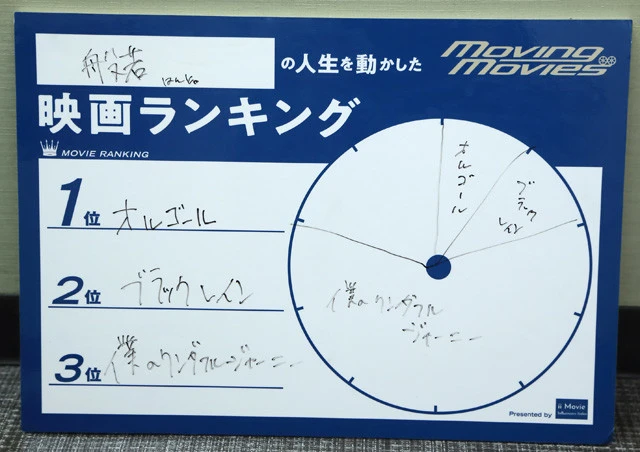 般若 はんにゃ
の人生を動かした
Moving Movies
映画ランキング
MOVIE RANKING
1位 オルゴール
2位 ブラックレイン
3位 僕のワンダフルジャーニー
オルゴール
ブラック
レイン
僕のワンダフル
ジャーニー
Presented by ii Movie